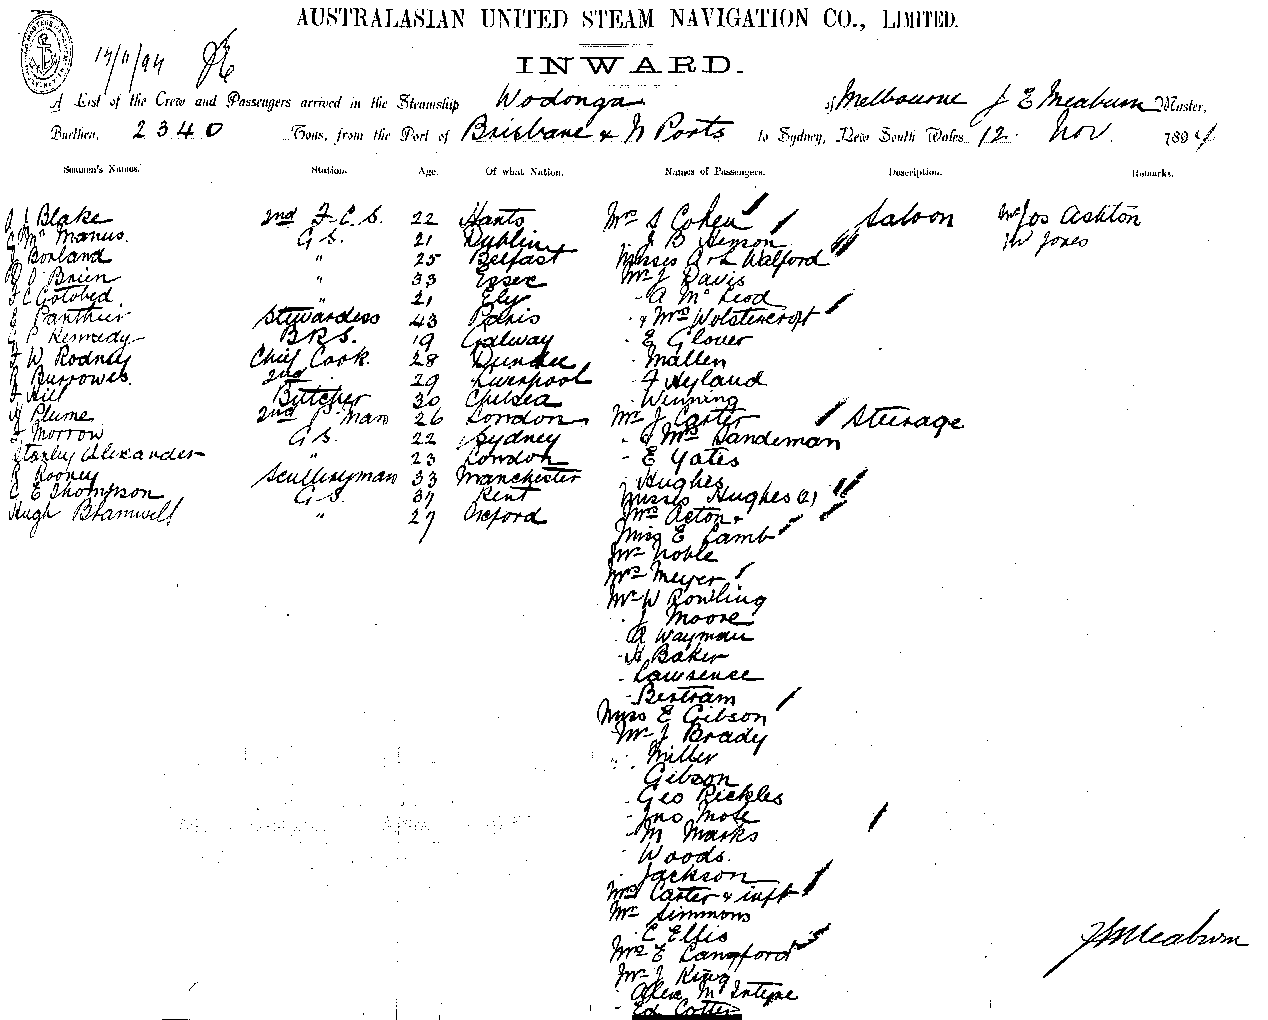 AUSTRALASIAN UNITED STEAM NAVIGATION CO., LIMITED.
INWARD.
A List of the Crew and Passengers arrived in the Steamship Wodonga of Melbourne J E Meaburn Master,
Burthen, 2340 Tons, from the Port of Brisbane & N Ports to Sydney, New South Wales 12 Nov 1894
Seamen's Names. Station. Age. Of what Nation. Names of Passengers. Description. Remarks.
J Blake 2nd F.C.S. 22 Hants Mrs S Cohen Saloon Mr Jos Ashton
McManus G S. 21 Dublin J B Henson W Jones
J Borland " 25 Belfast Misses A & L Walford
O'Brien " 33 Essex Mr J Davis
F C Gotobed " 21 Ely A McLeod
Panthier Stewardess 43 Paris & Mrs Wolstencroft
P Kennedy B.R.S. 19 Galway E Glover
F W Rodney Chief Cook. 28 Dundee Mallen
R Burrowes 2nd 29 Liverpool F Hyland
F Hill Butcher 30 Chelsea Winning
H Plume 2nd P Man 26 London Mr J Carter Steerage
F Morrow G S. 22 Sydney & Mrs Sandeman
Stanley Alexander " 23 London E Yates
R Rooney Sculleryman 33 Manchester Hughes
C E Thompson G S. 37 Kent Misses Hughes (2)
Hugh Bramwell " 27 Oxford Mrs Acton
Miss E Lamb
Mr Noble
Mrs Meyer
Mr W Rowling
J Moore
A Wayman
H Baker
Lawrence
Bertram
Miss E Gibson
Mr J Brady
Miller
Gibson
Geo Rickles
Jno Mose
M Marks
Woods.
Jackson
Mrs Carter & inft
Mr Simmons
C Ellis
Mrs E Langford
Mr J King
Alex McIntyre
Ed Cotter
J E Meaburn